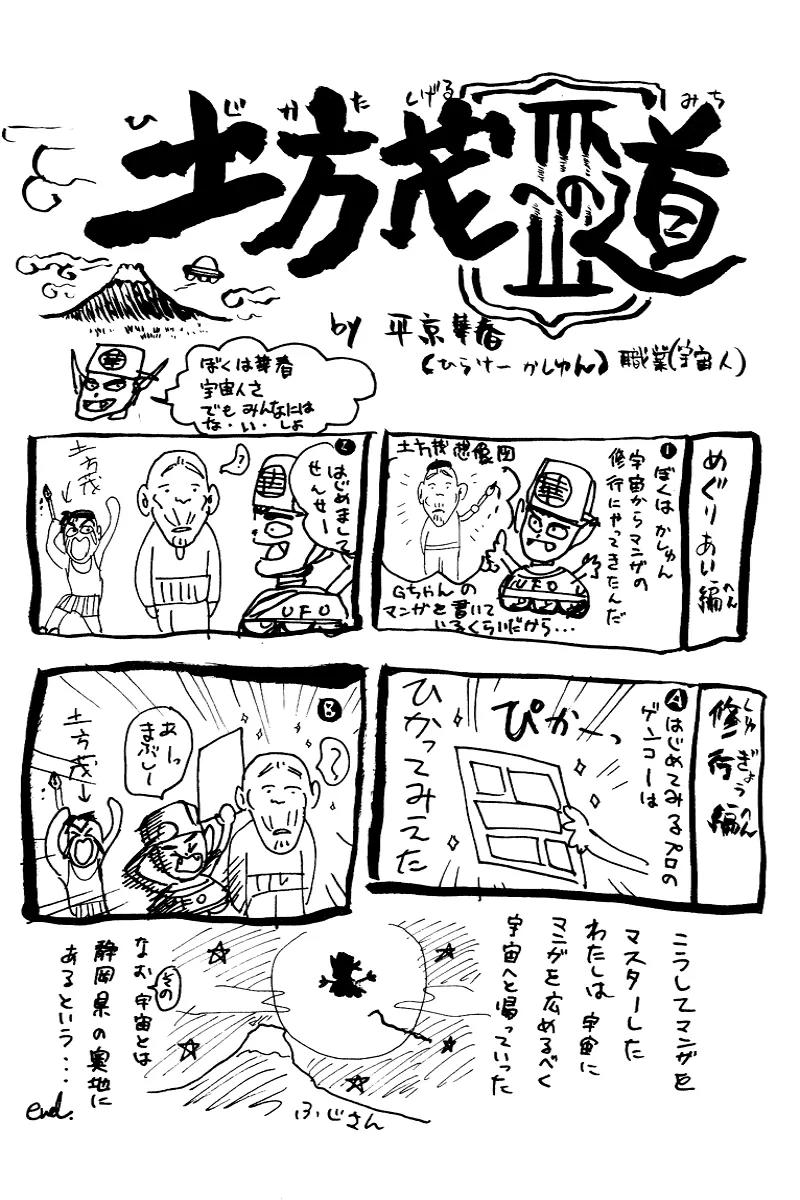 ひじかた しげる みち
土方茂への道
by 平京華春
(ひらけー かしゅん) 職業(宇宙人)
華
ぼくは華春
宇宙人さ
でもみんなには
な・い・しょ
めぐりあい編
へん
1
ぼくは かしゅん
宇宙からマンガの
修行にやってきたんだ
土方茂想像図
華
UFO
Gちゃんの
マンガを書いて
いるくらいだから・・・
2
はじめまして
せんせー
?
華
UFO
土方茂
修行編
しゅぎょうへん
A
はじめてみるプロの
ゲンコーは
ぴかーっ
ひかってみえた
B
?
あーっ
まぶしー
土方茂
こうしてマンガを
マスターした
わたしは 宇宙に
マンガを広めるべく
宇宙へと帰っていった
ふじさん
なお その 宇宙とは
静岡県の奥地に
あるという・・・
end.